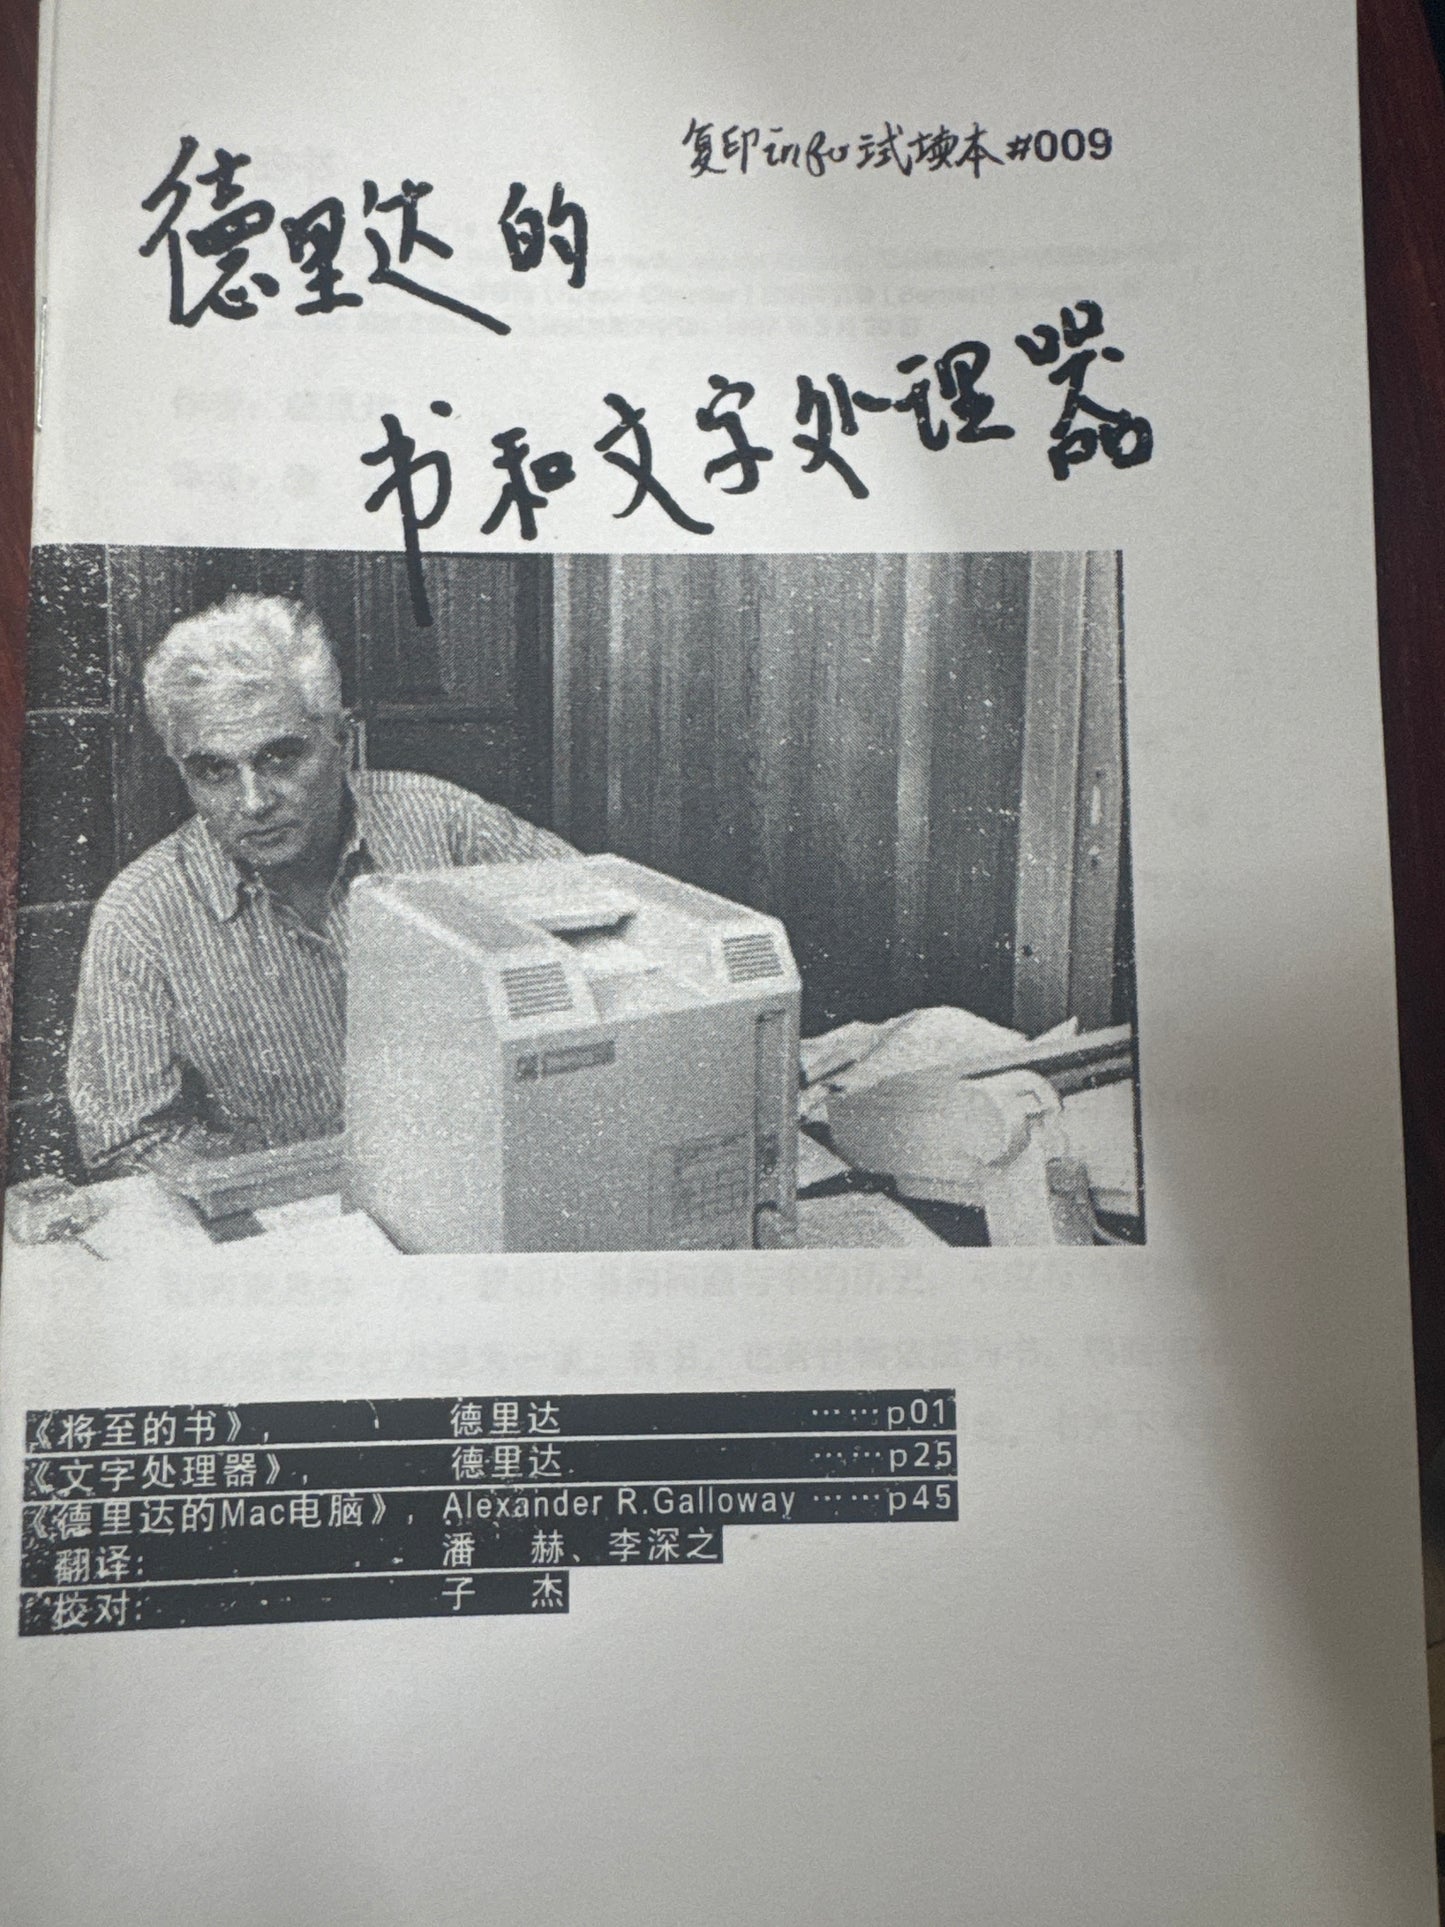 复印info试读本#009
德里达的
书和文字处理器
《将至的书》, 德里达 ……p01
《文字处理器》, 德里达 ……p25
《德里达的Mac电脑》, Alexander R.Galloway ……p45
翻译: 潘 赫、李深之
校对: 子 杰